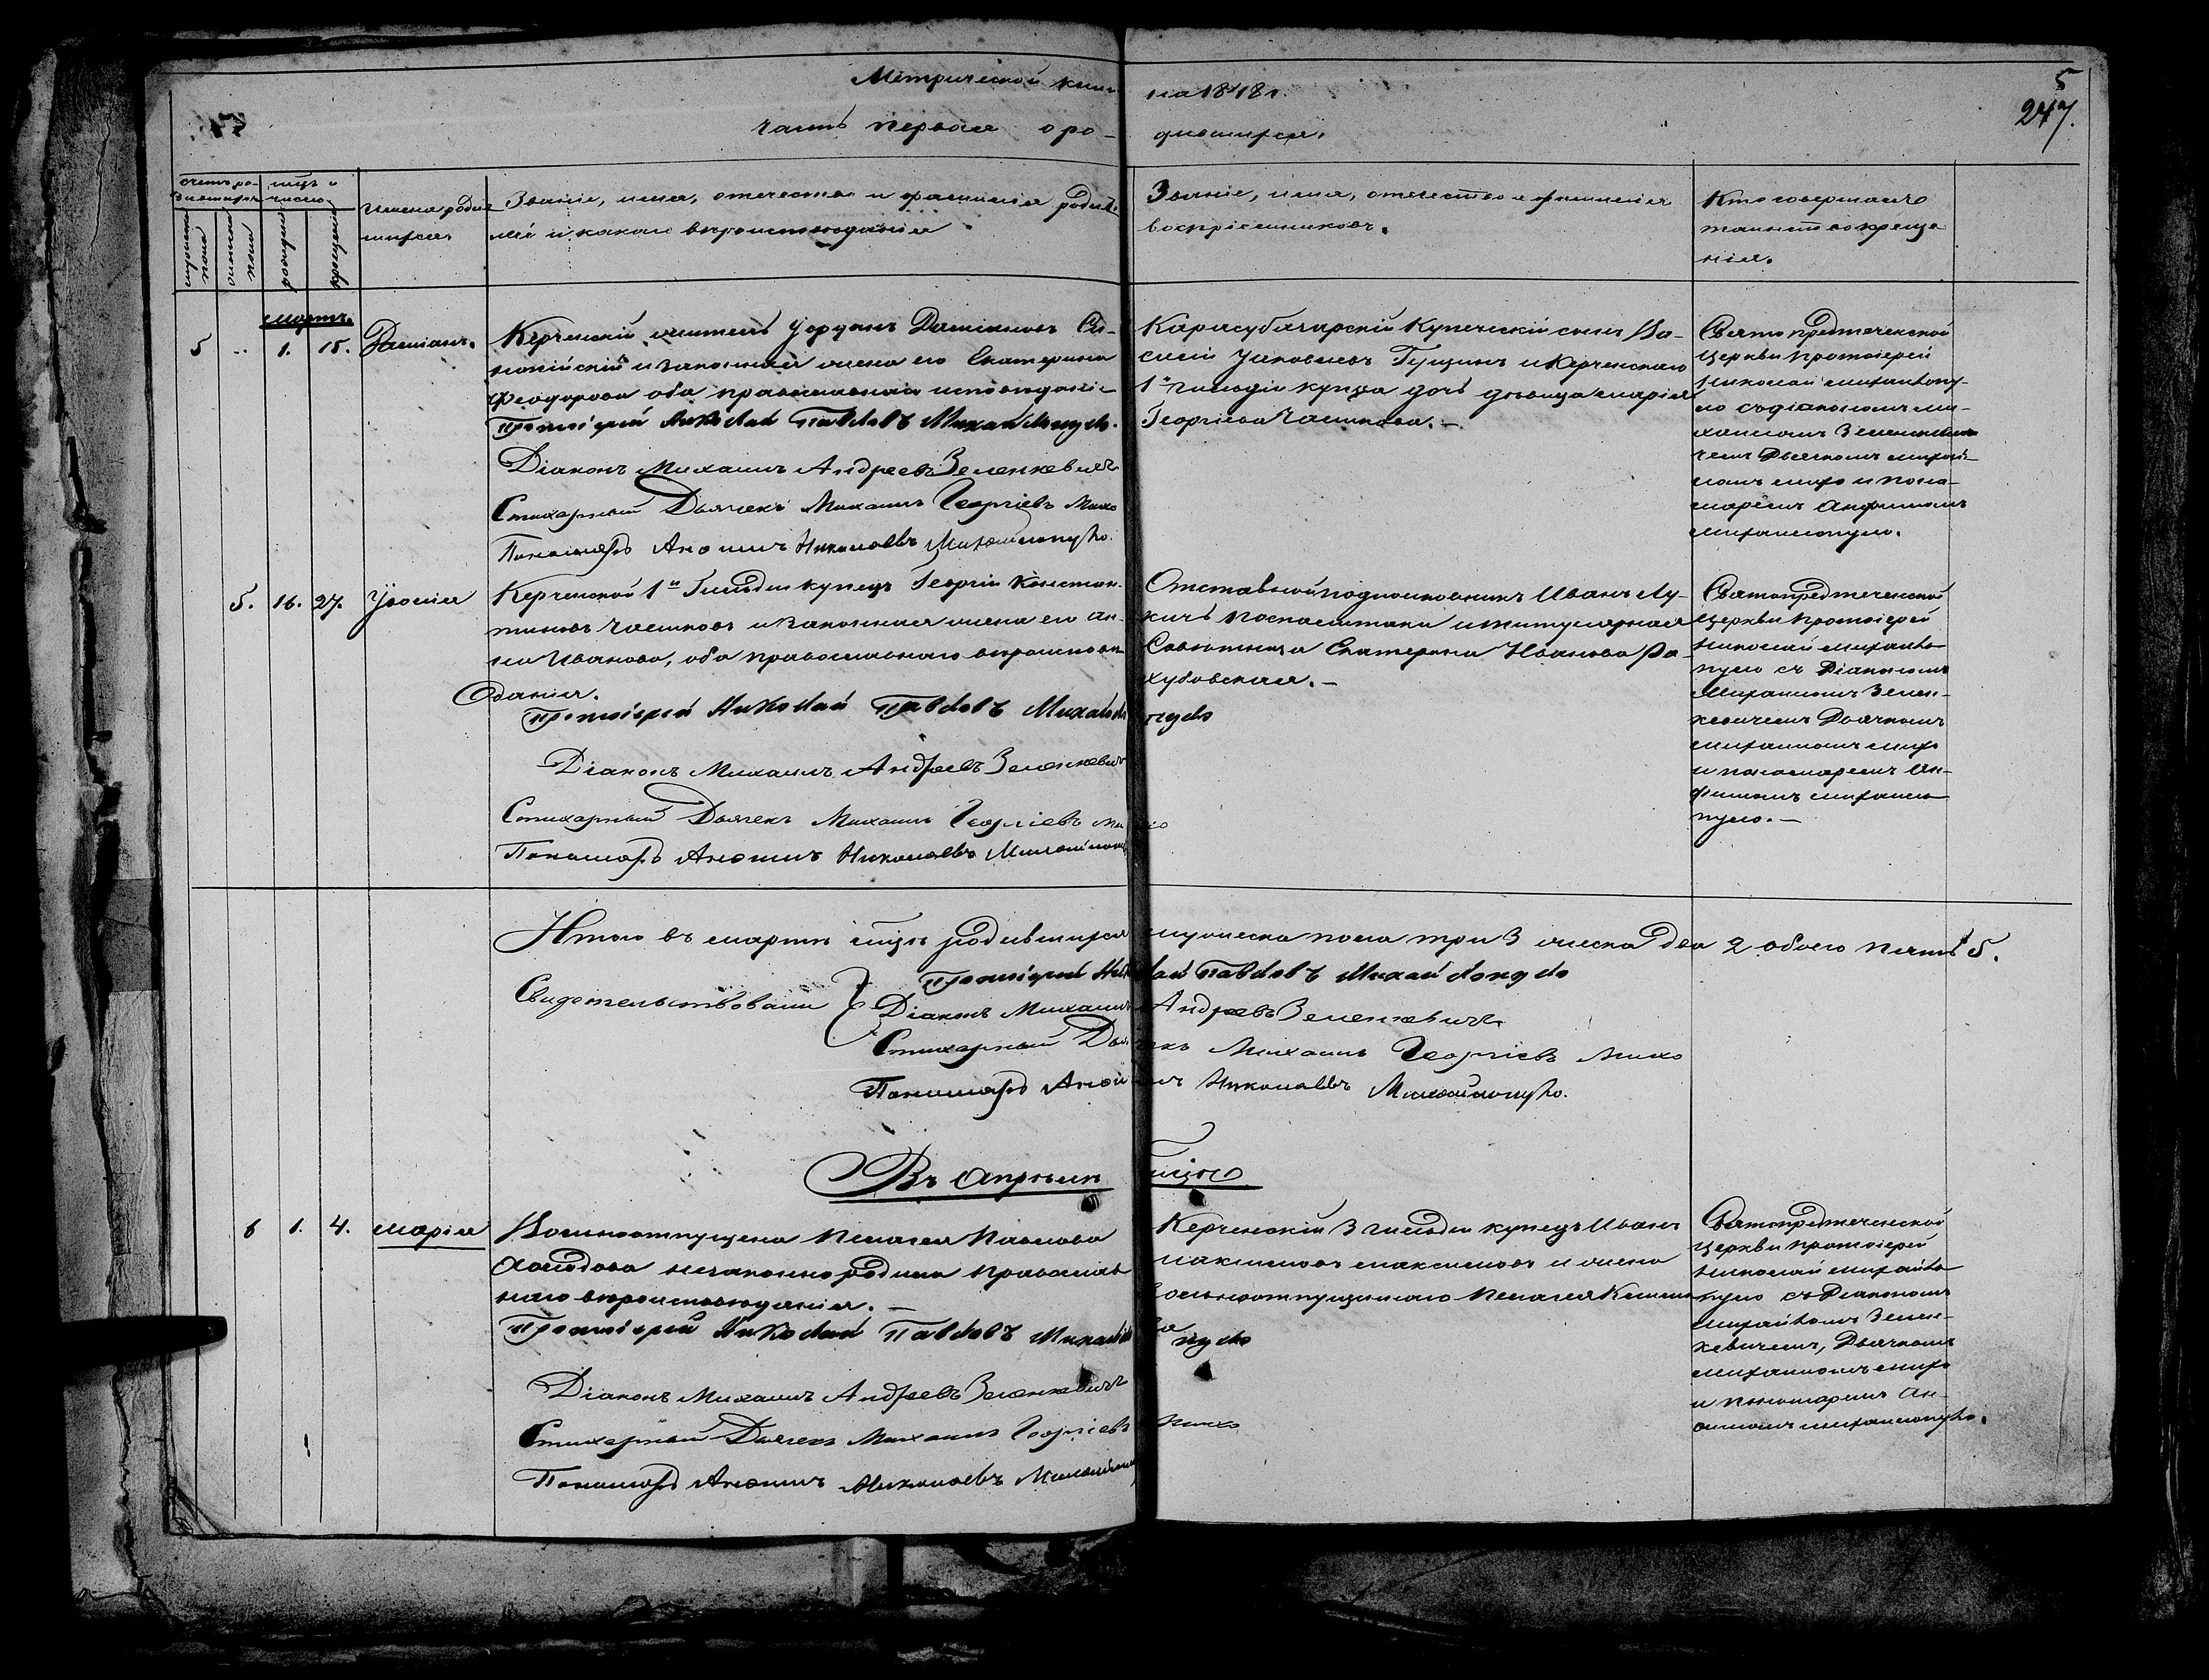 Метрической книги на 1848 г.
5
247.
часть первая о родившихся.
счетъ родившихся
мѣсяцъ и число
мужеска пола
женска пола
рожденія
крещенія
Имена родившихся
Званіе, имя, отечество и фамилія родителей и какого вѣроисповѣданія
Званіе, имя, отечество и фамилія воспріемниковъ.
Кто совершалъ таинство крещенія.
мартъ.
5 .. 1. 15. Даміанъ.
Керченскій житель Іорданъ Даміановъ Си-
нопійскій и законная жена его Екатерина
Феодорова оба православнаго исповѣдані-
Протоіерей Николай Павловъ Михайлопуло.
Діаконъ Михаилъ Андреевъ Зеленкевичъ
Стихарный Дьячекъ Михаилъ Георгіевъ Михо
Пономарь Анфимъ Николаевъ Михайлопуло.
Карасубазарскій Купеческій сынъ Ва-
силій Яковлевъ Гущинъ и Керченскаго
1й гильдіи купца дочь дѣвица Марія
Георгіева Чашникова. —
Святопредтеченской
Церкви Протоіерей
Николай Михайлопу-
ло съ діакономъ Ми-
хаиломъ Зеленкеви-
чемъ Дьячкомъ Михаи-
ломъ Михо и поно-
маремъ Анфимомъ
Михайлопуло.
5. 16. 27. Іулія
Керченской 1й Гильдіи купецъ Георгій Констан-
тиновъ Чашниковъ и законная жена его Ан-
на Иванова, оба православнаго вѣроисповѣ-
данія.
Протоіерей Николай Павловъ Михайлопуло
Діаконъ Михаилъ Андреевъ Зеленкевичъ
Стихарный Дьячекъ Михаилъ Георгіевъ Михо
Пономарь Анфимъ Николаевъ Михайлопуло
Отставной подполковникъ Иванъ Лу-
кичъ и титулярная
Совѣтница Екатерина Иванова Ра-
ховская. —
Святопредтеченской
Церкви Протоіерей
Николай Михайло-
пуло съ Діакономъ
Михаиломъ Зелен-
кевичемъ Дьячкомъ
Михаиломъ Михо
и пономаремъ Ан-
фимомъ Михайло-
пуло. —
Итого въ мартѣ мѣсяцѣ родившихся мужеска пола три 3 женска два 2 обоего пять 5.
Свидѣтельствовали
Протоіерей Николай Павловъ Михайлопуло
Діаконъ Михаилъ Андреевъ Зеленкевичъ
Стихарный Дьячекъ Михаилъ Георгіевъ Михо
Пономарь Анфимъ Николаевъ Михайлопуло.
Въ Апрѣлѣ мѣсяцѣ
6 1. 4. Марія
Вольноотпущена Пелагея Павлова
незаконно родила православ-
наго вѣроисповѣданія. —
Протоіерей Николай Павловъ Михайлопуло
Діаконъ Михаилъ Андреевъ Зеленкевичъ
Стихарный Дьячекъ Михаилъ Георгіевъ Михо
Пономарь Анфимъ Николаевъ
Керченскій 3 гильдіи купецъ Иванъ
Максимовъ Максимовъ и жена
вольноотпущеннаго Пелагея
Святопредтеченской
Церкви Протоіерей
Николай Михайло-
пуло съ Діакономъ
Михаиломъ Зелен-
кевичемъ, Дьячкомъ
Михаиломъ Михо
и пономаремъ Ан-
фимомъ Михайлопуло.